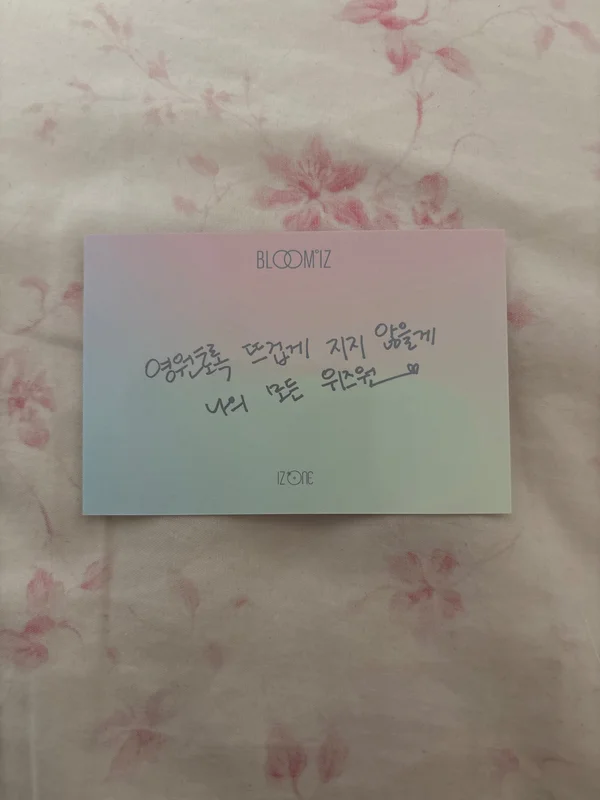 BLOOM*IZ
영원토록 뜨겁게 지지 않을게
나의 모든 위즈원
IZ*ONE